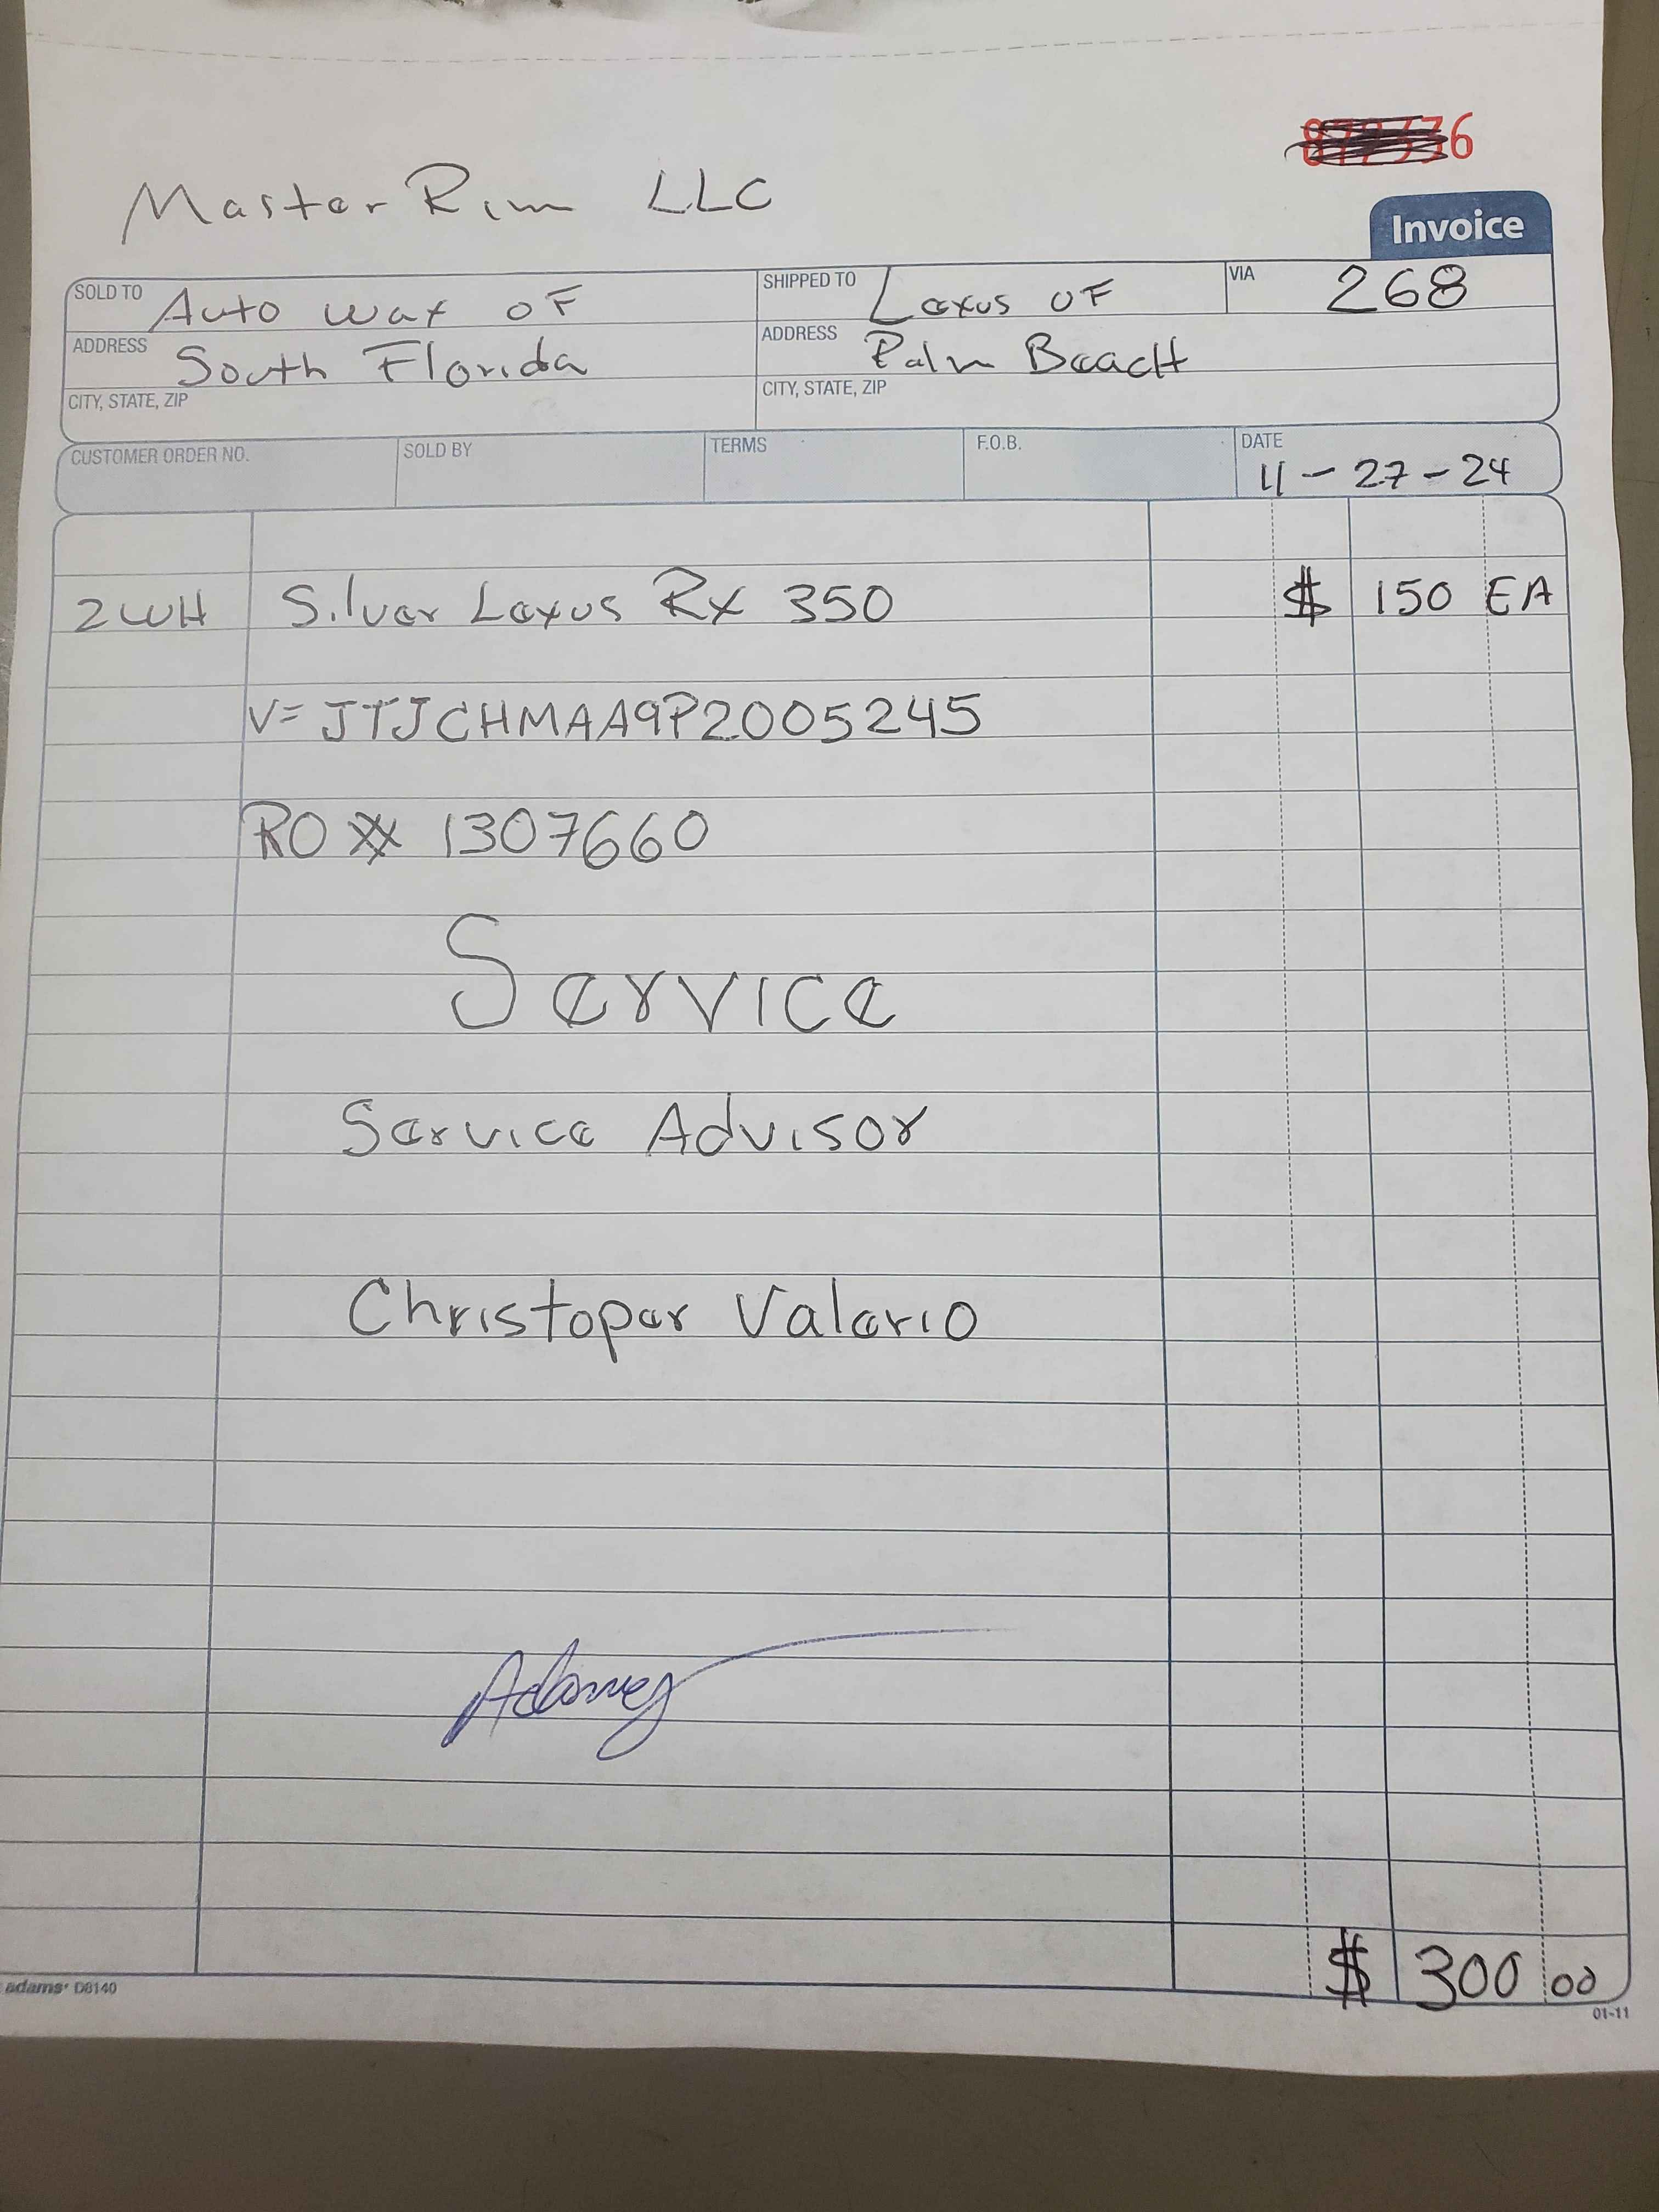 6
Master Rim LLC
Invoice
SOLD TO Auto wax OF
SHIPPED TO Lexus OF
VIA 268
ADDRESS South Florida
ADDRESS Palm BeacH
CITY, STATE, ZIP
CITY, STATE, ZIP
CUSTOMER ORDER NO. SOLD BY TERMS F.O.B. DATE
11 - 27 - 24
2WH Silver Lexus Rx 350 $ 150 EA
V= JTJCHMAA9P2005245
RO # 1307660
Service
Service Advisor
Christoper Valerio
$ 300 00
adams® D8140
01-11